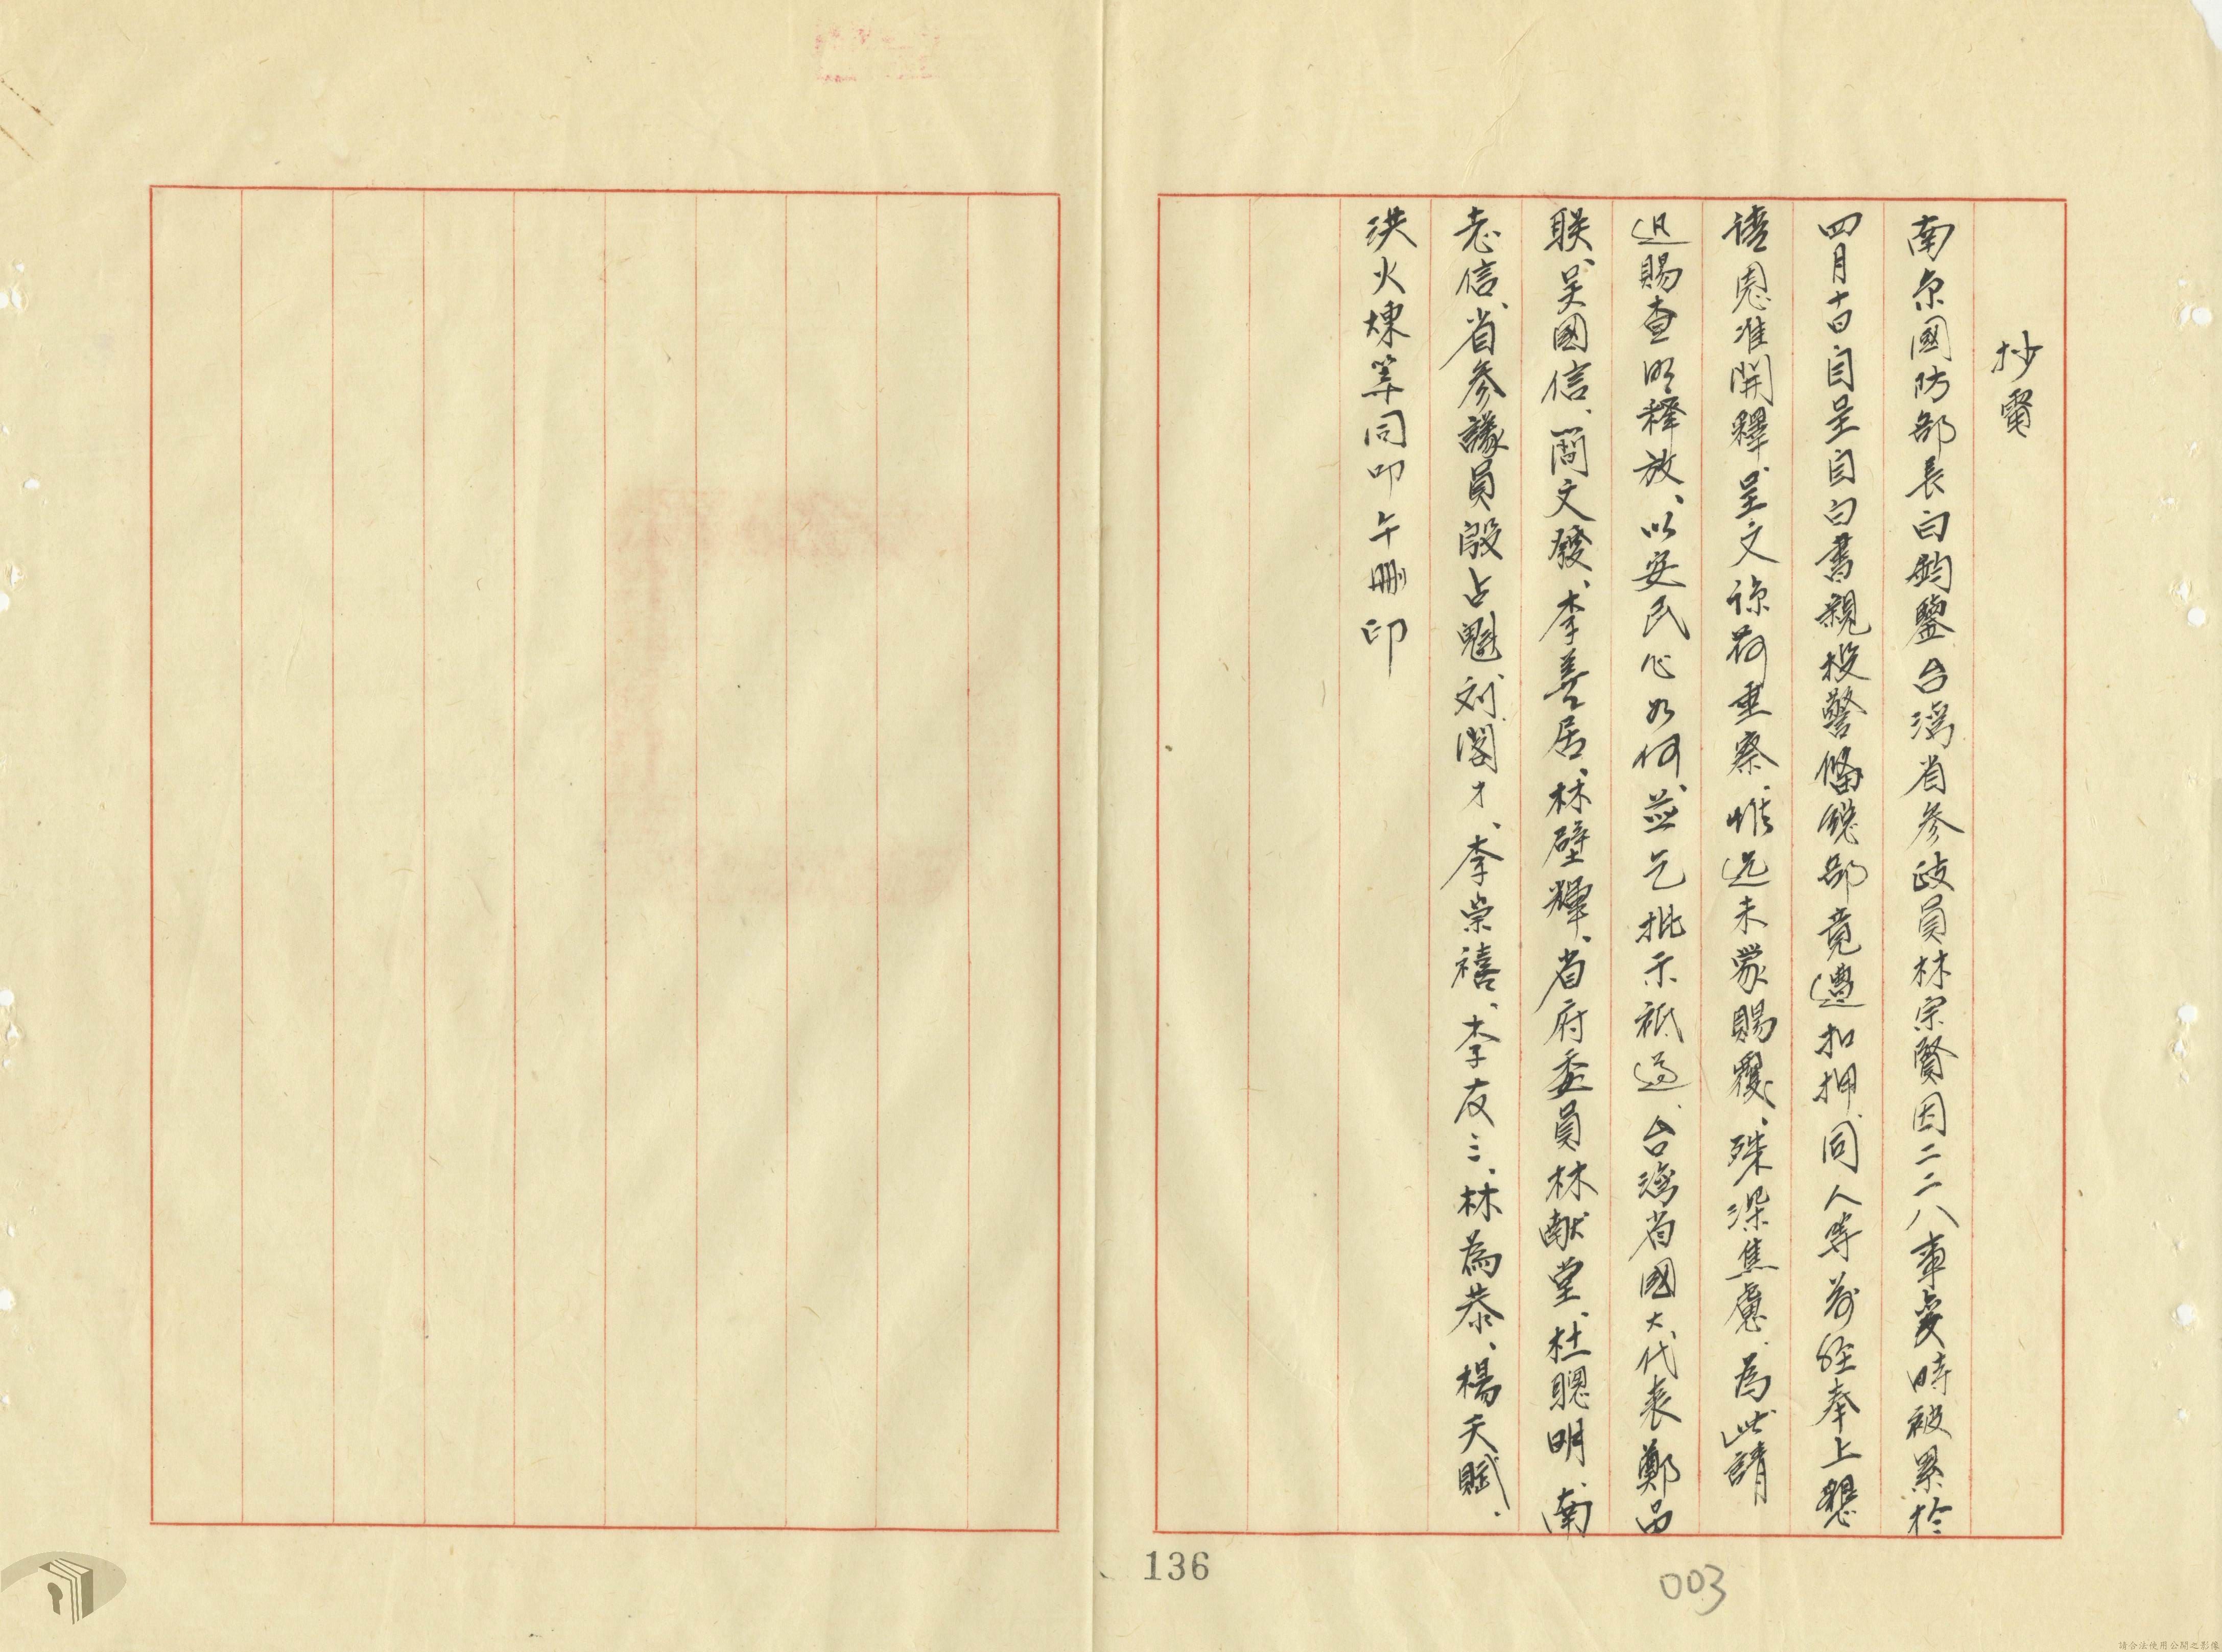 抄電
南京國防部長白鈞鑒台湾省参政員林宗賢因二二八事変時被累於
四月十日自呈自白書親投警備総部竟遭扣押、同人等前経奉上懇
請恩准開釋呈文諒荷垂察、惟迄未蒙賜覆、殊深焦慮、為此請
迅賜查明釋放、以安民心如何、並乞批示祗遵、台湾省國大代表鄭品
聡、吴國信、簡文發、李善居、林壁輝、省府委員林献堂、杜聰明、南
志信、省参議員殷占魁、刘闊才、李崇禧、李友三、林為恭、楊天賦、
洪火煉等同叩午刪印
136
003
請合法使用公開之影像